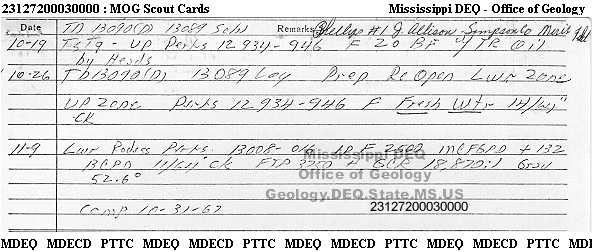 23127200030000 : MOG Scout Cards Mississippi DEQ - Office of Geology
Date TD 13090(D) 13089 Remarks Phillips #1 J. Allison Simpson Co Merit Fld
10-19 Tstg - UP Perfs 12934-946 F 20 BF w/ TR Oil
by Heads
10-26 TD 13090(D) 13089 Log Prep Re Open Lwr Zone
UP Zone Perfs 12934-946 F Fresh Wtr 14/64"
CK
11-9 Lwr Rodess Perfs. 13008-016 IP F 2500 MCFGPD + 132
BCPD 11/64" CK FTP 18,870:1 Grav
52.6°
Mississippi DEQ
Office of Geology
Geology.DEQ.State.MS.US
Comp 10-31-67 23127200030000
MDEQ MDECD PTTC MDEQ MDECD PTTC MDEQ MDECD PTTC MDEQ MDECD PTTC MD